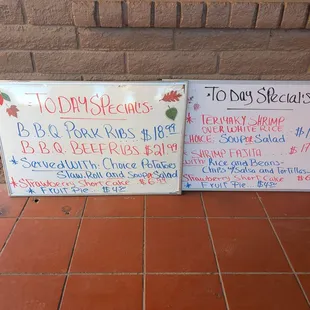 TODAY SPECIALS:
BBQ PORK RIBS $18.99
BBQ BEEF RIBS $21.99
* SERVED WITH: CHOICE POTATOES
SLAW, ROLL AND SOUP or SALAD
* STRAWBERRY SHORT CAKE $6.99
* FRUIT PIE $4.99
TODAY SPECIALS
* TERIYAKY SHRIMP
OVER WHITE RICE
CHOICE: SOUP or SALAD
* SHRIMP FAJITA
WITH RICE AND BEANS-
CHIPS & SALSA AND TORTILLAS
* STRAWBERRY SHORT CAKE
* FRUIT PIE